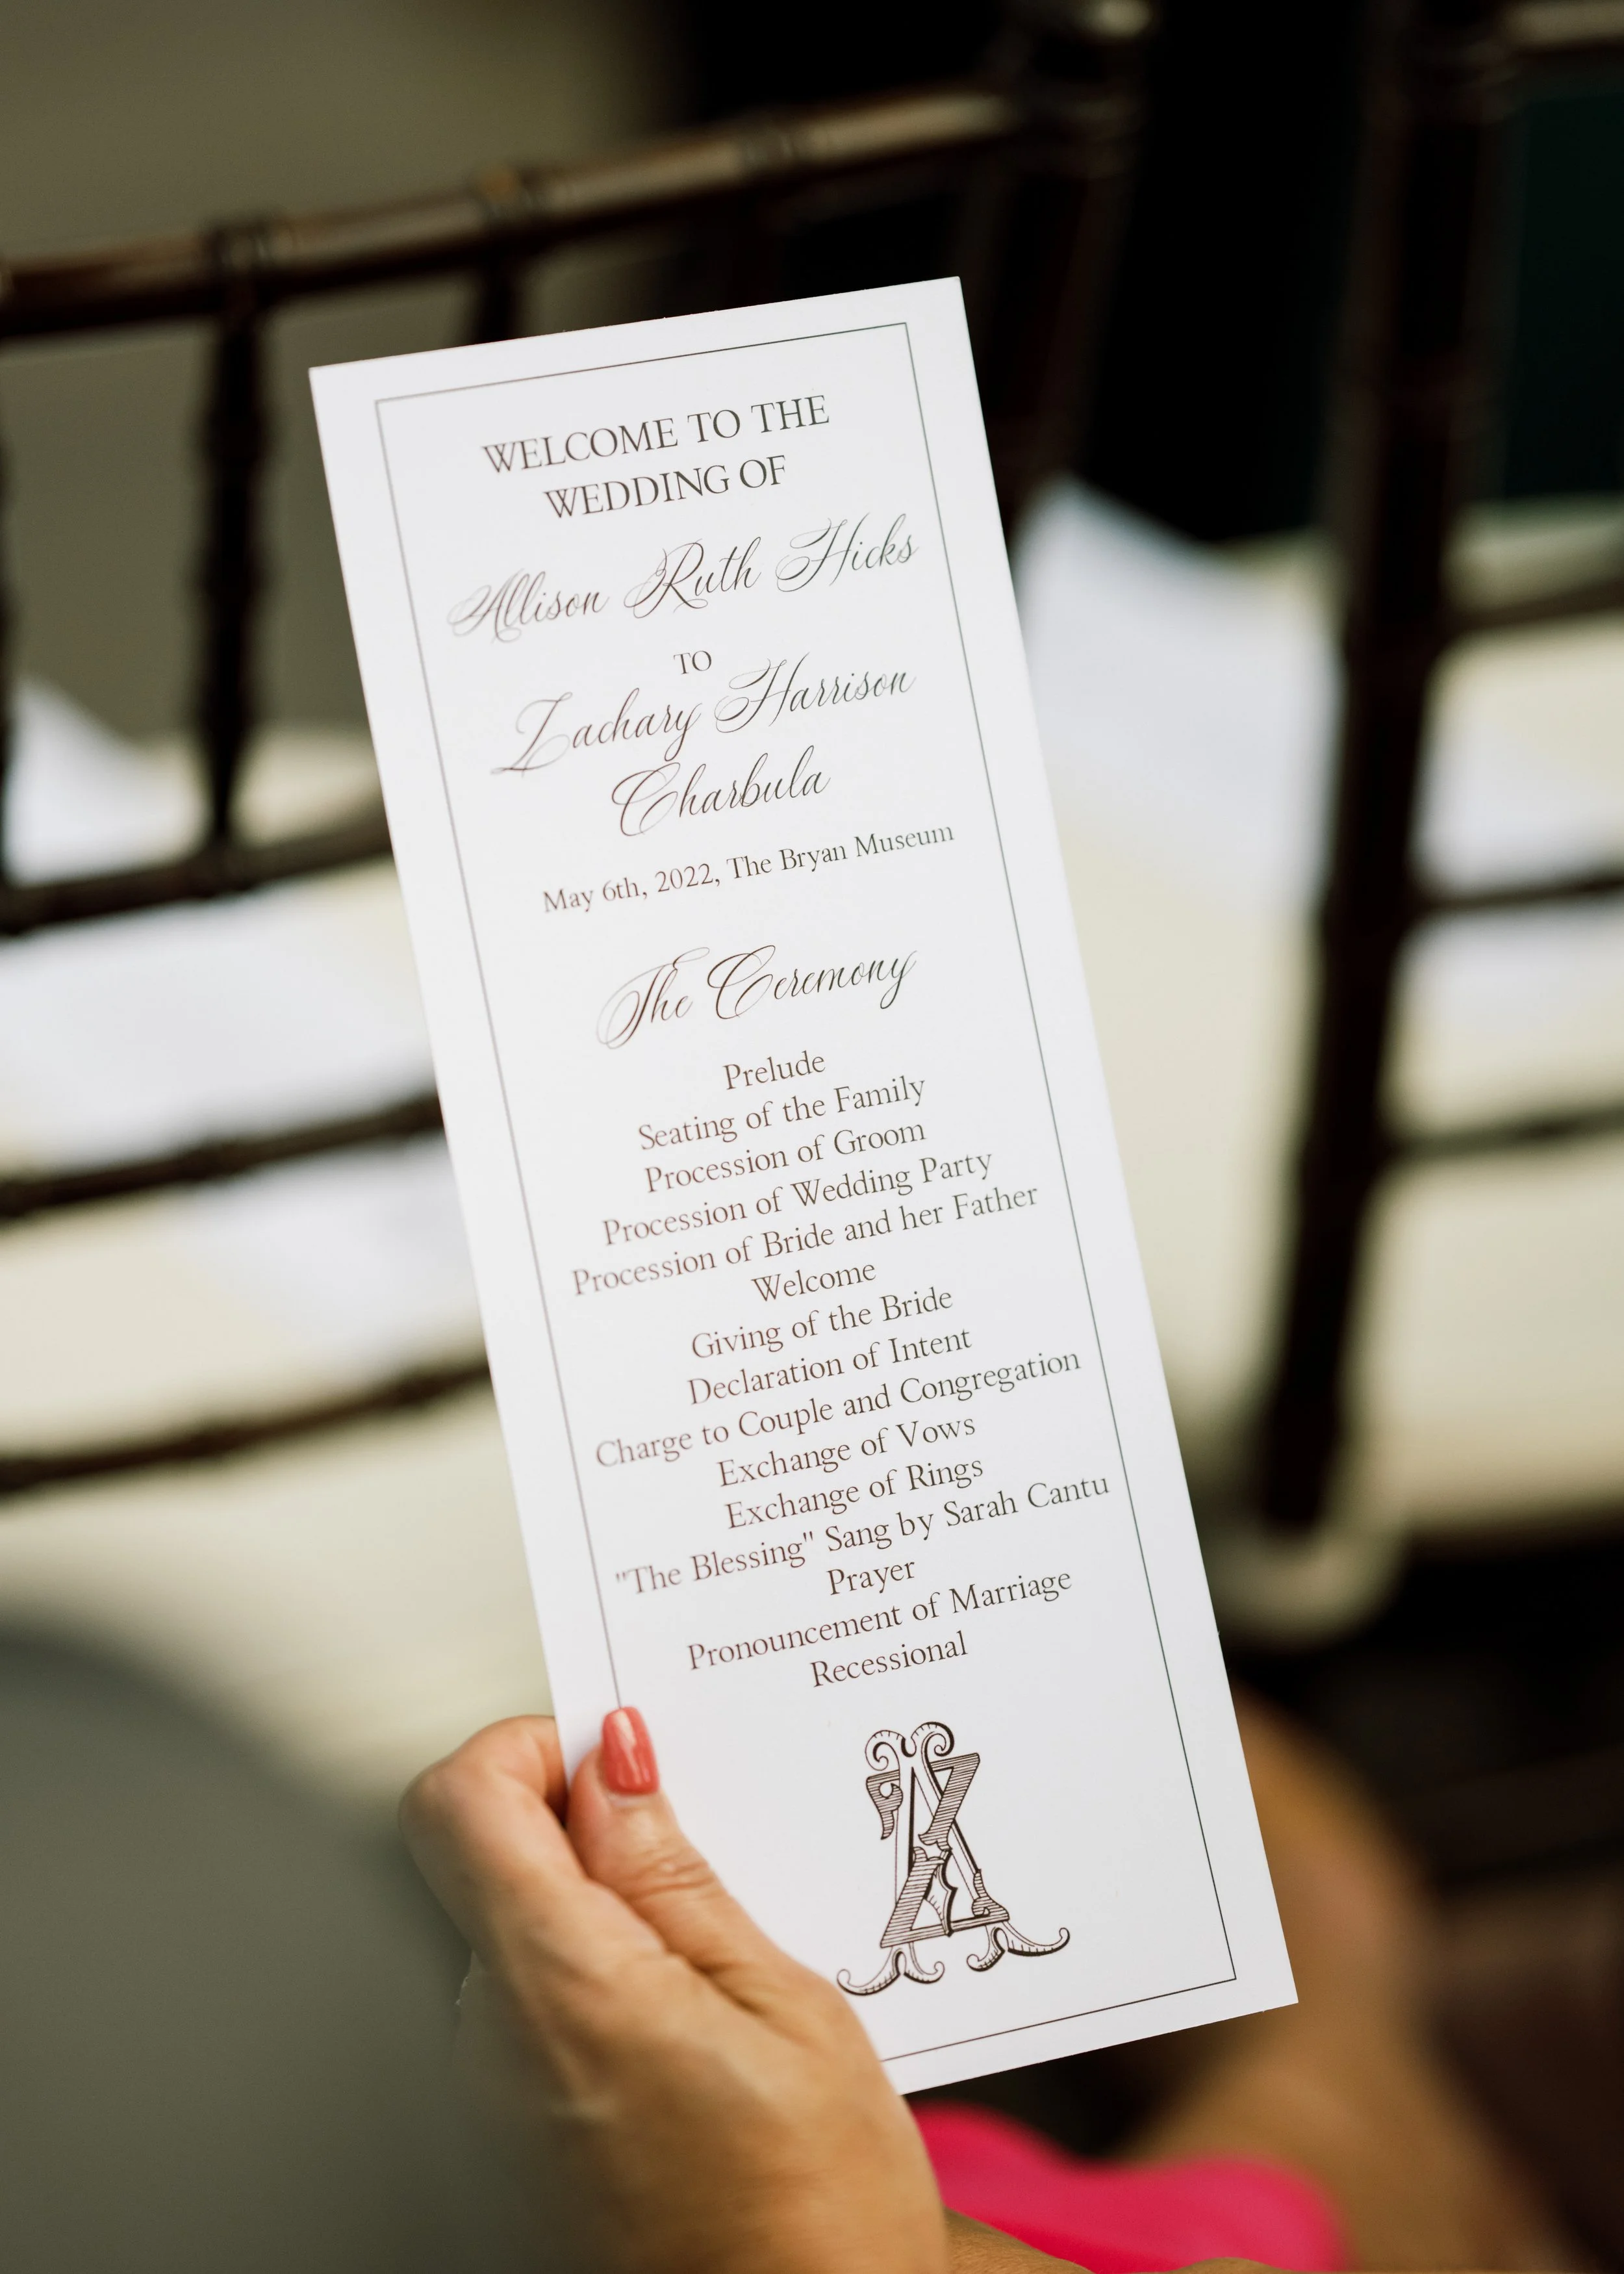 WELCOME TO THE
WEDDING OF
Allison Ruth Hicks
TO
Zachary Harrison
Charbula
May 6th, 2022, The Bryan Museum
The Ceremony
Prelude
Seating of the Family
Procession of Groom
Procession of Wedding Party
Procession of Bride and her Father
Welcome
Giving of the Bride
Declaration of Intent
Charge to Couple and Congregation
Exchange of Vows
Exchange of Rings
"The Blessing" Sang by Sarah Cantu
Prayer
Pronouncement of Marriage
Recessional
AZ